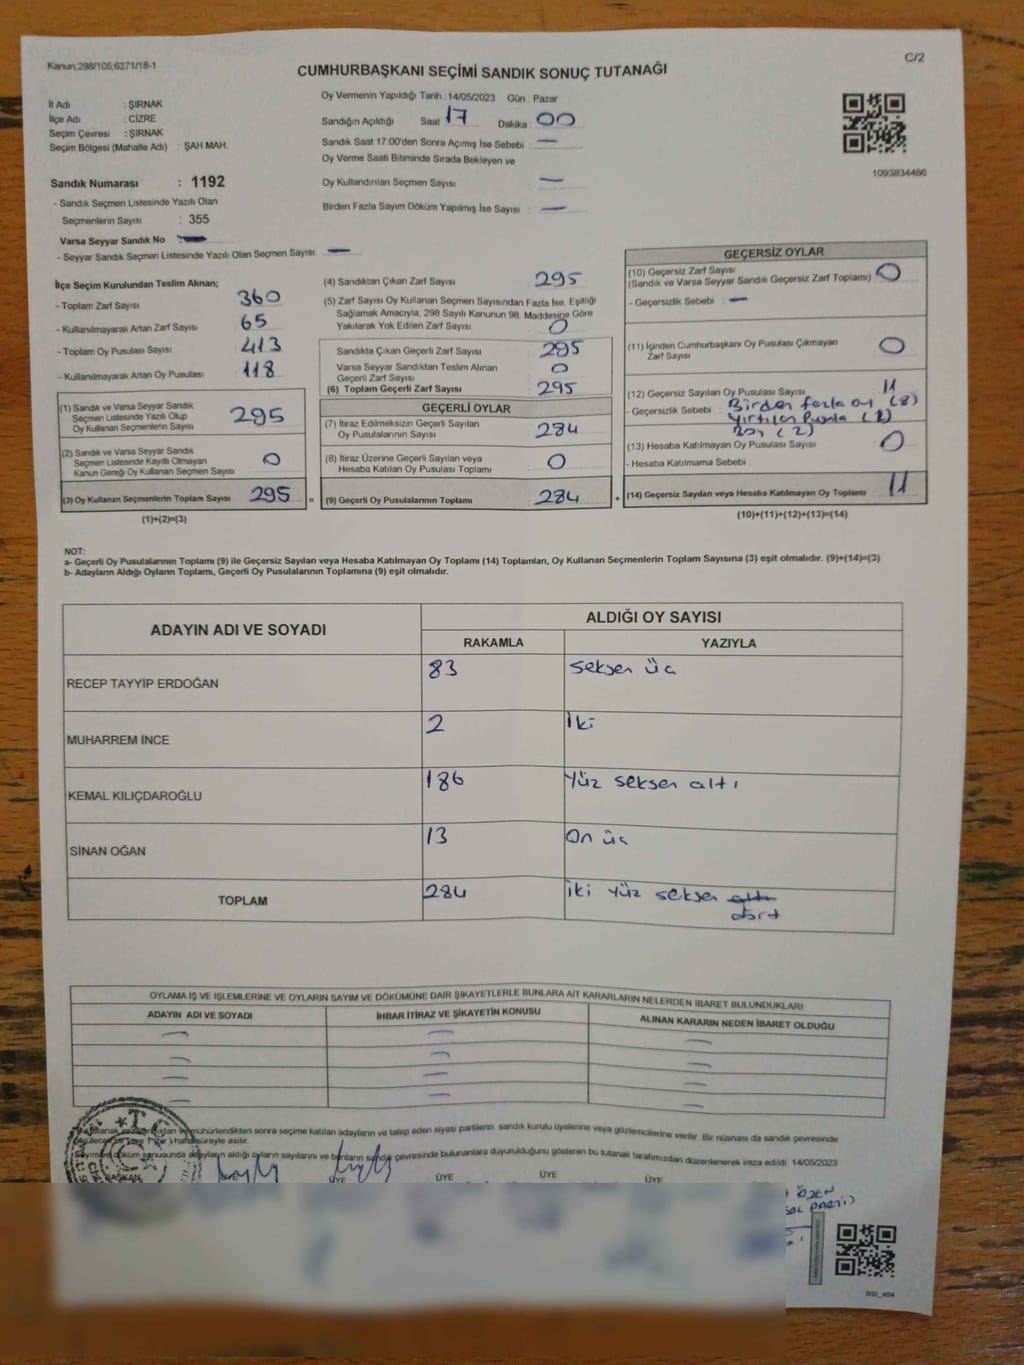 Kanun:298/105;6271/18-1
C/2
CUMHURBAŞKANI SEÇİMİ SANDIK SONUÇ TUTANAĞI
İl Adı : ŞIRNAK
İlçe Adı : CİZRE
Seçim Çevresi : ŞIRNAK
Seçim Bölgesi (Mahalle Adı) : ŞAH MAH.
Sandık Numarası : 1192
- Sandık Seçmen Listesinde Yazılı Olan
Seçmenlerin Sayısı : 355
Varsa Seyyar Sandık No :
- Seyyar Sandık Seçmen Listesinde Yazılı Olan Seçmen Sayısı: —
Oy Vermenin Yapıldığı Tarih : 14/05/2023 Gün : Pazar
Sandığın Açıldığı Saat 17 Dakika : 00
Sandık Saat 17:00'den Sonra Açımış İse Sebebi : —
Oy Verme Saati Bitiminde Sırada Bekleyen ve
Oy Kullandırılan Seçmen Sayısı : —
Birden Fazla Sayım Döküm Yapılmış İse Sayısı : —
1093834486
İlçe Seçim Kurulundan Teslim Alınan;
- Toplam Zarf Sayısı : 360
- Kullanılmayarak Artan Zarf Sayısı : 65
- Toplam Oy Pusulası Sayısı : 413
- Kullanılmayarak Artan Oy Pusulası : 118
(1) Sandık ve Varsa Seyyar Sandık
Seçmen Listesinde Yazılı Olup
Oy Kullanan Seçmenlerin Sayısı 295
(2) Sandık ve Varsa Seyyar Sandık
Seçmen Listesinde Kayıtlı Olmayan
Kanun Gereği Oy Kullanan Seçmen Sayısı 0
(3) Oy Kullanan Seçmenlerin Toplam Sayısı 295 =
(1)+(2)=(3)
(4) Sandıktan Çıkan Zarf Sayısı : 295
(5) Zarf Sayısı Oy Kullanan Seçmen Sayısından Fazla İse, Eşitliği
Sağlamak Amacıyla, 298 Sayılı Kanunun 98. Maddesine Göre
Yakılarak Yok Edilen Zarf Sayısı : 0
Sandıkta Çıkan Geçerli Zarf Sayısı : 295
Varsa Seyyar Sandıktan Teslim Alınan
Geçerli Zarf Sayısı : 0
(6) Toplam Geçerli Zarf Sayısı : 295
GEÇERLİ OYLAR
(7) İtiraz Edilmeksizin Geçerli Sayılan
Oy Pusulalarının Sayısı : 284
(8) İtiraz Üzerine Geçerli Sayılan veya
Hesaba Katılan Oy Pusulası Toplamı : 0
(9) Geçerli Oy Pusulalarının Toplamı : 284 +
GEÇERSİZ OYLAR
(10) Geçersiz Zarf Sayısı
(Sandık ve Varsa Seyyar Sandık Geçersiz Zarf Toplamı) : 0
- Geçersizlik Sebebi : —
(11) İçinden Cumhurbaşkanı Oy Pusulası Çıkmayan
Zarf Sayısı : 0
(12) Geçersiz Sayılan Oy Pusulası Sayısı : 11
Geçersizlik Sebebi : Birden fazla oy (8)
Yırtılan Pusula (1)
Boş (2)
(13) Hesaba Katılmayan Oy Pusulası Sayısı : 0
- Hesaba Katılmama Sebebi :
(14) Geçersiz Sayılan veya Hesaba Katılmayan Oy Toplamı : 11
(10)+(11)+(12)+(13)=(14)
NOT:
a- Geçerli Oy Pusulalarının Toplamı (9) ile Geçersiz Sayılan veya Hesaba Katılmayan Oy Toplamı (14) Toplamları, Oy Kullanan Seçmenlerin Toplam Sayısına (3) eşit olmalıdır. (9)+(14)=(3)
b- Adayların Aldığı Oyların Toplamı, Geçerli Oy Pusulalarının Toplamına (9) eşit olmalıdır.
ADAYIN ADI VE SOYADI
ALDIĞI OY SAYISI
RAKAMLA YAZIYLA
RECEP TAYYİP ERDOĞAN 83 seksen üç
MUHARREM İNCE 2 iki
KEMAL KILIÇDAROĞLU 186 Yüz seksen altı
SİNAN OĞAN 13 On üç
TOPLAM 284 iki yüz seksen altı
dört
OYLAMA İŞ VE İŞLEMLERİNE VE OYLARIN SAYIM VE DÖKÜMÜNE DAİR ŞİKAYETLERLE BUNLARA AİT KARARLARIN NELERDEN İBARET BULUNDUKLARI
ADAYIN ADI VE SOYADI İHBAR İTİRAZ VE ŞİKAYETİN KONUSU ALINAN KARARIN NEDEN İBARET OLDUĞU
— — —
— — —
— — —
— — —
mühürlendikten sonra seçime katılan adayların ve talep eden siyasi partilerin sandık kurulu üyelerine veya gözlemcilerine verilir. Bir nüshası da sandık çevresinde
süreyle asılır.
döküm sonucunda adayların aldığı oyların sayılarını ve bunların sandık çevresinde bulunanlara duyurulduğunu gösteren bu tutanak tarafımızdan düzenlenerek imza edildi. 14/05/2023
BAŞKAN ÜYE ÜYE ÜYE ÜYE
ÖZEN
SSİ_404